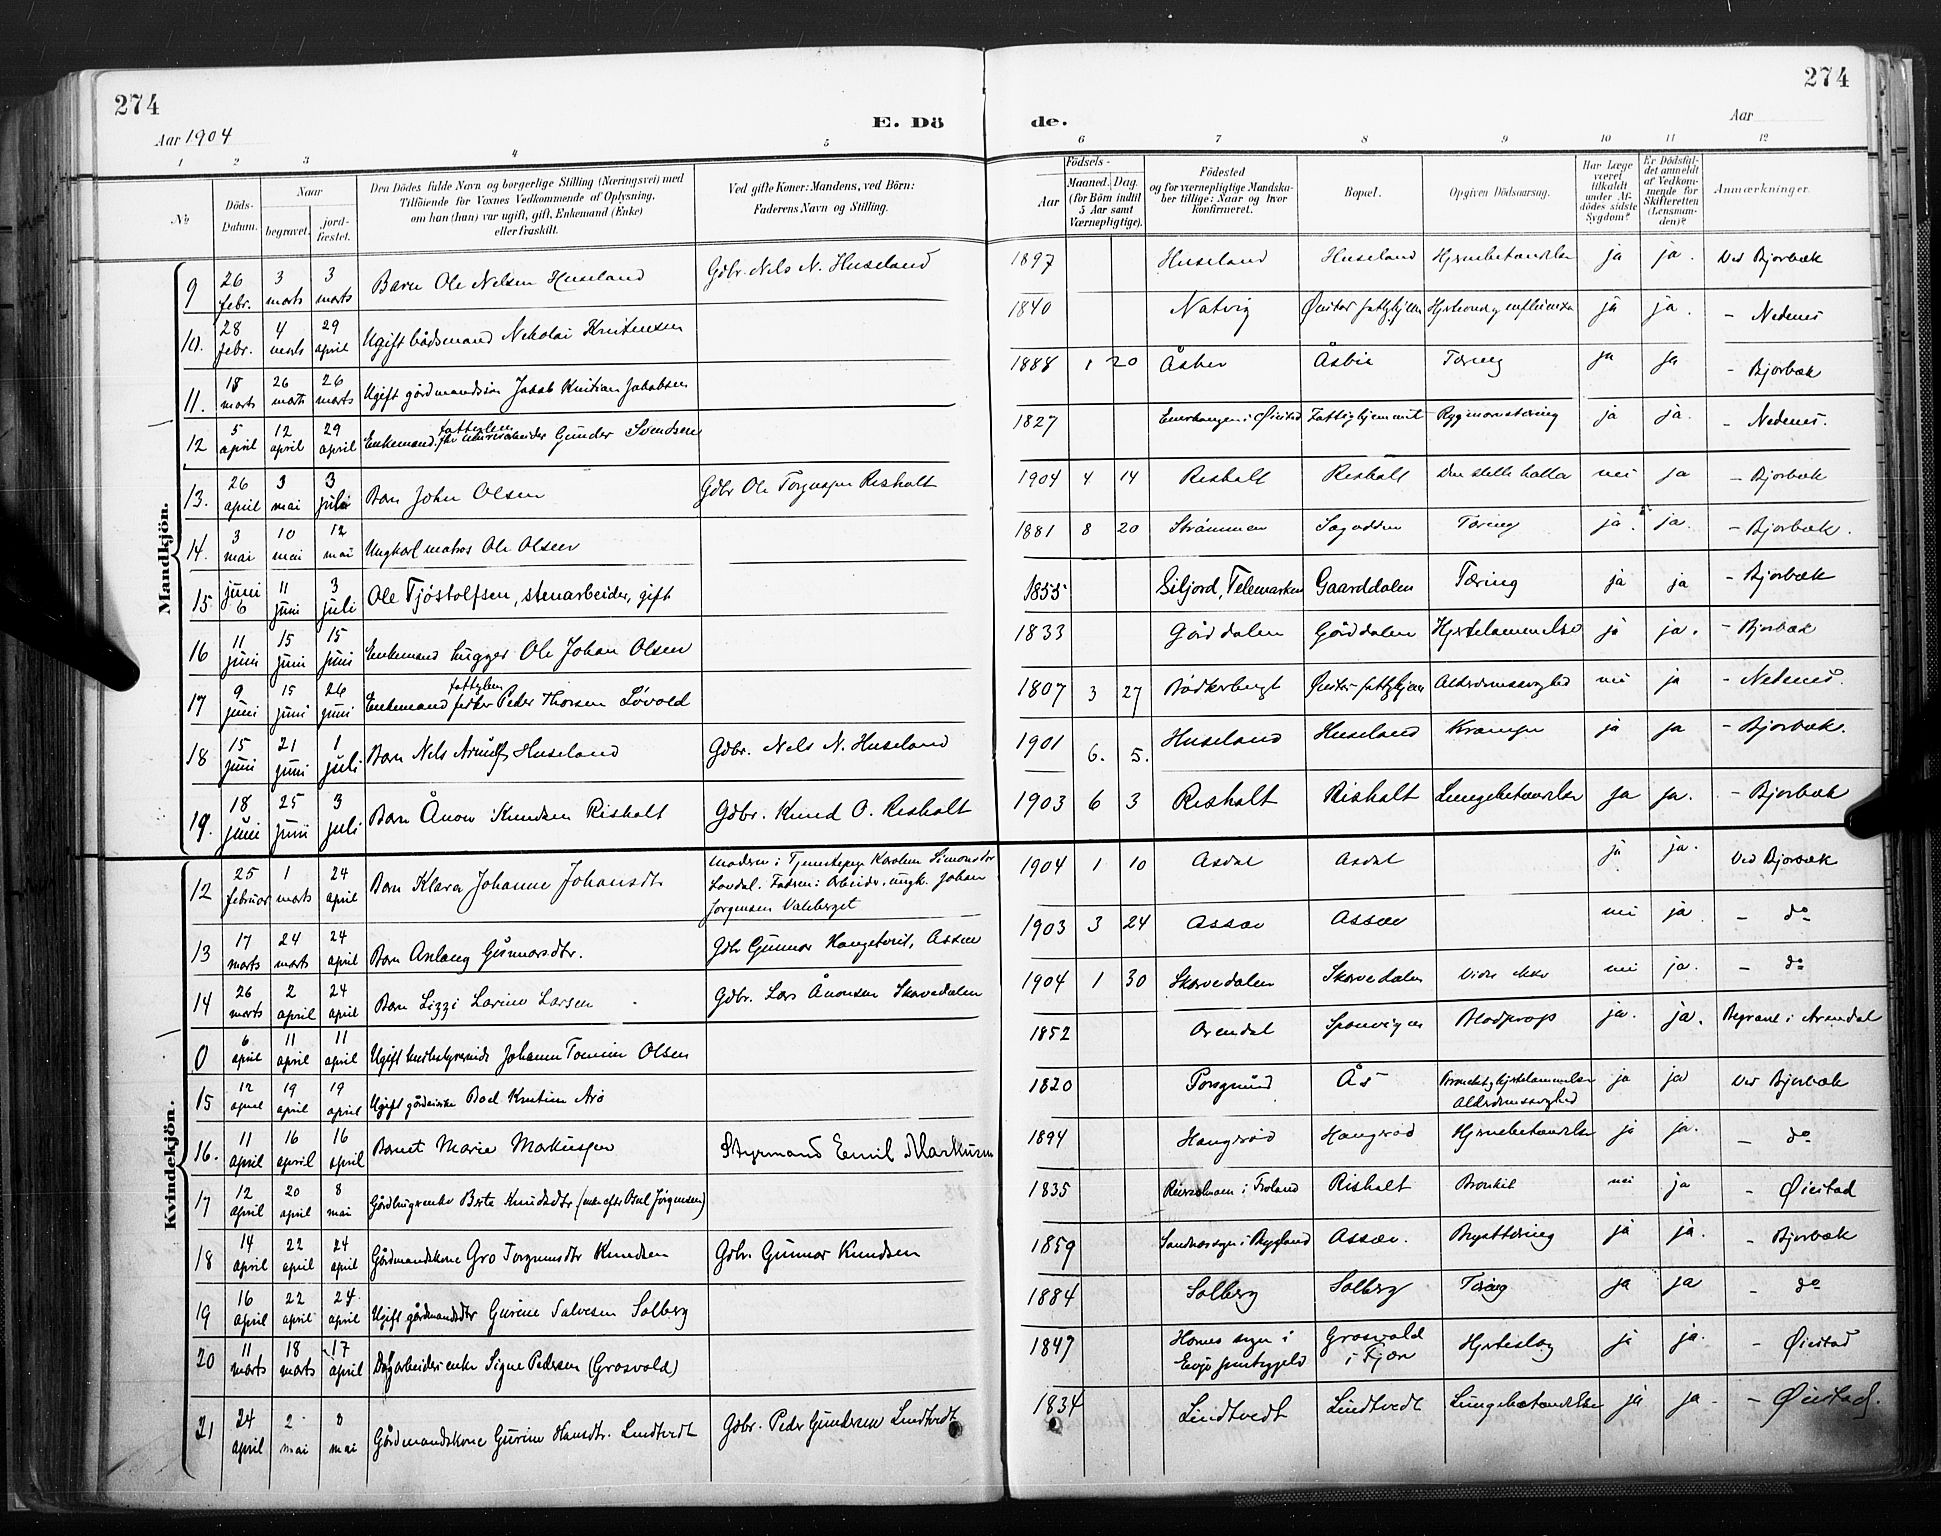 274
274
Aar 1904
E. Dö
de.
Aar
1 2 3 4 5 6 7 8 9 10 11 12
No
Döds-Datum.
Naar
begravet.
jord-fæstet.
Den Dödes fulde Navn og borgerlige Stilling (Næringsvei) med Tilföiende for Voxnes Vedkommende af Oplysning, om han (hun) var ugift, gift, Enkemand (Enke) eller fraskilt.
Ved gifte Koner: Mandens, ved Börn: Faderens Navn og Stilling.
Födsels-
Aar
Maaned. Dag.
(for Börn indtil 5 Aar samt Værnepligtige).
Födested og for værnepligtige Mandskaber tillige: Naar og hvor konfirmeret.
Bopæl.
Opgiven Dödsaarsag.
Har Læge været tilkaldt under Afdödes sidste Sygdom?
Er Dödsfaldet anmeldt af Vedkommende for Skifteretten (Lensmanden)?
Anmærkninger.
Mandkjön.
9 26 febr. 3 marts 3 marts Barn Ole Nelsen Huseland Gdbr. Nels N. Huseland 1897 Huseland Huseland Hjernebetændelse ja ja. Ved Bjorbæk
10. 28 febr. 4 marts 29 april Ugift bådsmand Nikolai Kristensen 1840 Natvig ja ja. – Nedenes
11. 18 marts 26 marts 26 marts Ugift gårdmandssøn Jacob Kristian Jakobsen 1888 1 20 Tæring ja ja – Bjorbæk
12 5 april 12 april 29 april Enkemand, Gunder Svendsen 1827 Fattighjemmet Rygmarvstæring ja ja. – Nedenes.
13. 26 april 3 mai 3 juli Barn John Olsen Gdbr Ole Risholt 1904 4 14 Risholt Risholt nei ja – Bjorbæk
14. 3 mai 10 mai 12 mai Ungkarl matros Ole Olsen 1881 8 20 Strømmen Sagodden Tæring ja. ja. – Bjorbæk.
15. juni 6 11 juni 3 juli Ole Tjöstolfsen, stenarbeider, gift 1855 Siljord, Telemarken Gaarddalen Tæring ja ja – Bjorbæk
16 11 juni 15 juni 15 juni Enkemand hugger Ole Johan Olsen 1833 Gårddalen Gårddalen Hjertelammelse ja ja. – Bjorbæk
17 9 juni 15 juni 26 juni Enkemand fattiglem fisker Peder Thorsen Løvold 1807 3 27 Alderdomssvaghed nei ja – Nedenes.
18 15 juni 21 juni 1 juli Barn Nels Arnulf Huseland Gdbr. Nels N. Huseland 1901 6. 5. Huseland Huseland Krampe ja ja – Bjorbæk.
19. 18 juni 25 juni 3 juli Barn Ånon Knudsen Risholt Gdbr. Knud O. Risholt 1903 6 3 Risholt Risholt Lungebetændelse ja ja. – Bjorbæk
Kvindekjön.
12 25 februar 1 marts 24 april Barn Klara Johanne Johansdtr Moderen: Tjenestepige Karoline Simonsdtr
Løvdal. Faderen: Arbeider, ungk. Johan
Jørgensen 1904 1 10 Asdal Asdal ja ja. Ved Bjorbæk
13 17 marts 24 marts 24 april Barn Aslaug Gunnarsdtr. Gdbr Gunnar 1903 3 24 Assæv Assæv nei ja – do
14 26 marts 2 april 24 april Barn Lizzi Larine Larsen Gdbr. Lars Ånonsen Skarvedalen 1904 1 30 Skarvedalen Skarvedalen Vides ikke nei ja. – do
0 6 april 11 april 11 april Ugift Johanne Tomine Olsen 1852 Arendal Blodprop ja. ja. Begravet i Arendal
15 12 april 19 april 19 april Ugift Boel Kristine Arø 1820 Porsgrund Ås Bronkit, hjertelammelse Alderdomssvaghed ja ja Ved Bjorbæk
16. 11 april 16 april 16 april Barnet Marie Markussen Styrmand Emil Markussen 1894 Haugerød Haugerød Hjernebetændelse ja ja. – do
17 12 april 20 april 8 mai Gårdbrugerenke Berte Knudsdtr (enke efter Jørgensen) 1835 i Froland Risholt Bronkit nei ja – Øiestad
18 14 april 22 april 24 april Gårdmandskone Gro Torgrimsdtr Knudsen Gdbr. Gunnar Knudsen 1859 Sandnes sogn i Bygland Assæv. Brysttæring ja ja. – Bjorbæk
19 16 april 22 april 24 april Ugift gårdmandsdtr Gurine Salvesen Solberg 1884 Solberg Solberg Tæring ja ja – do
20 11 marts 18 marts 17 april Dagarbeiderenke Signe Pedersen (Grosvold) 1847 Hornes sogn i
Evje prestegjeld Grosvold i Fjære Hjerteslag ja ja. – Øiestad
21 24 april 2 mai 8 mai Gårdmandskone Gurine Hansdtr. Lindtvedt Gdbr. Peder Gundersen Lindtvedt 1834 Lindtvedt Lindtvedt Lungebetændelse ja ja. – Øiestad.